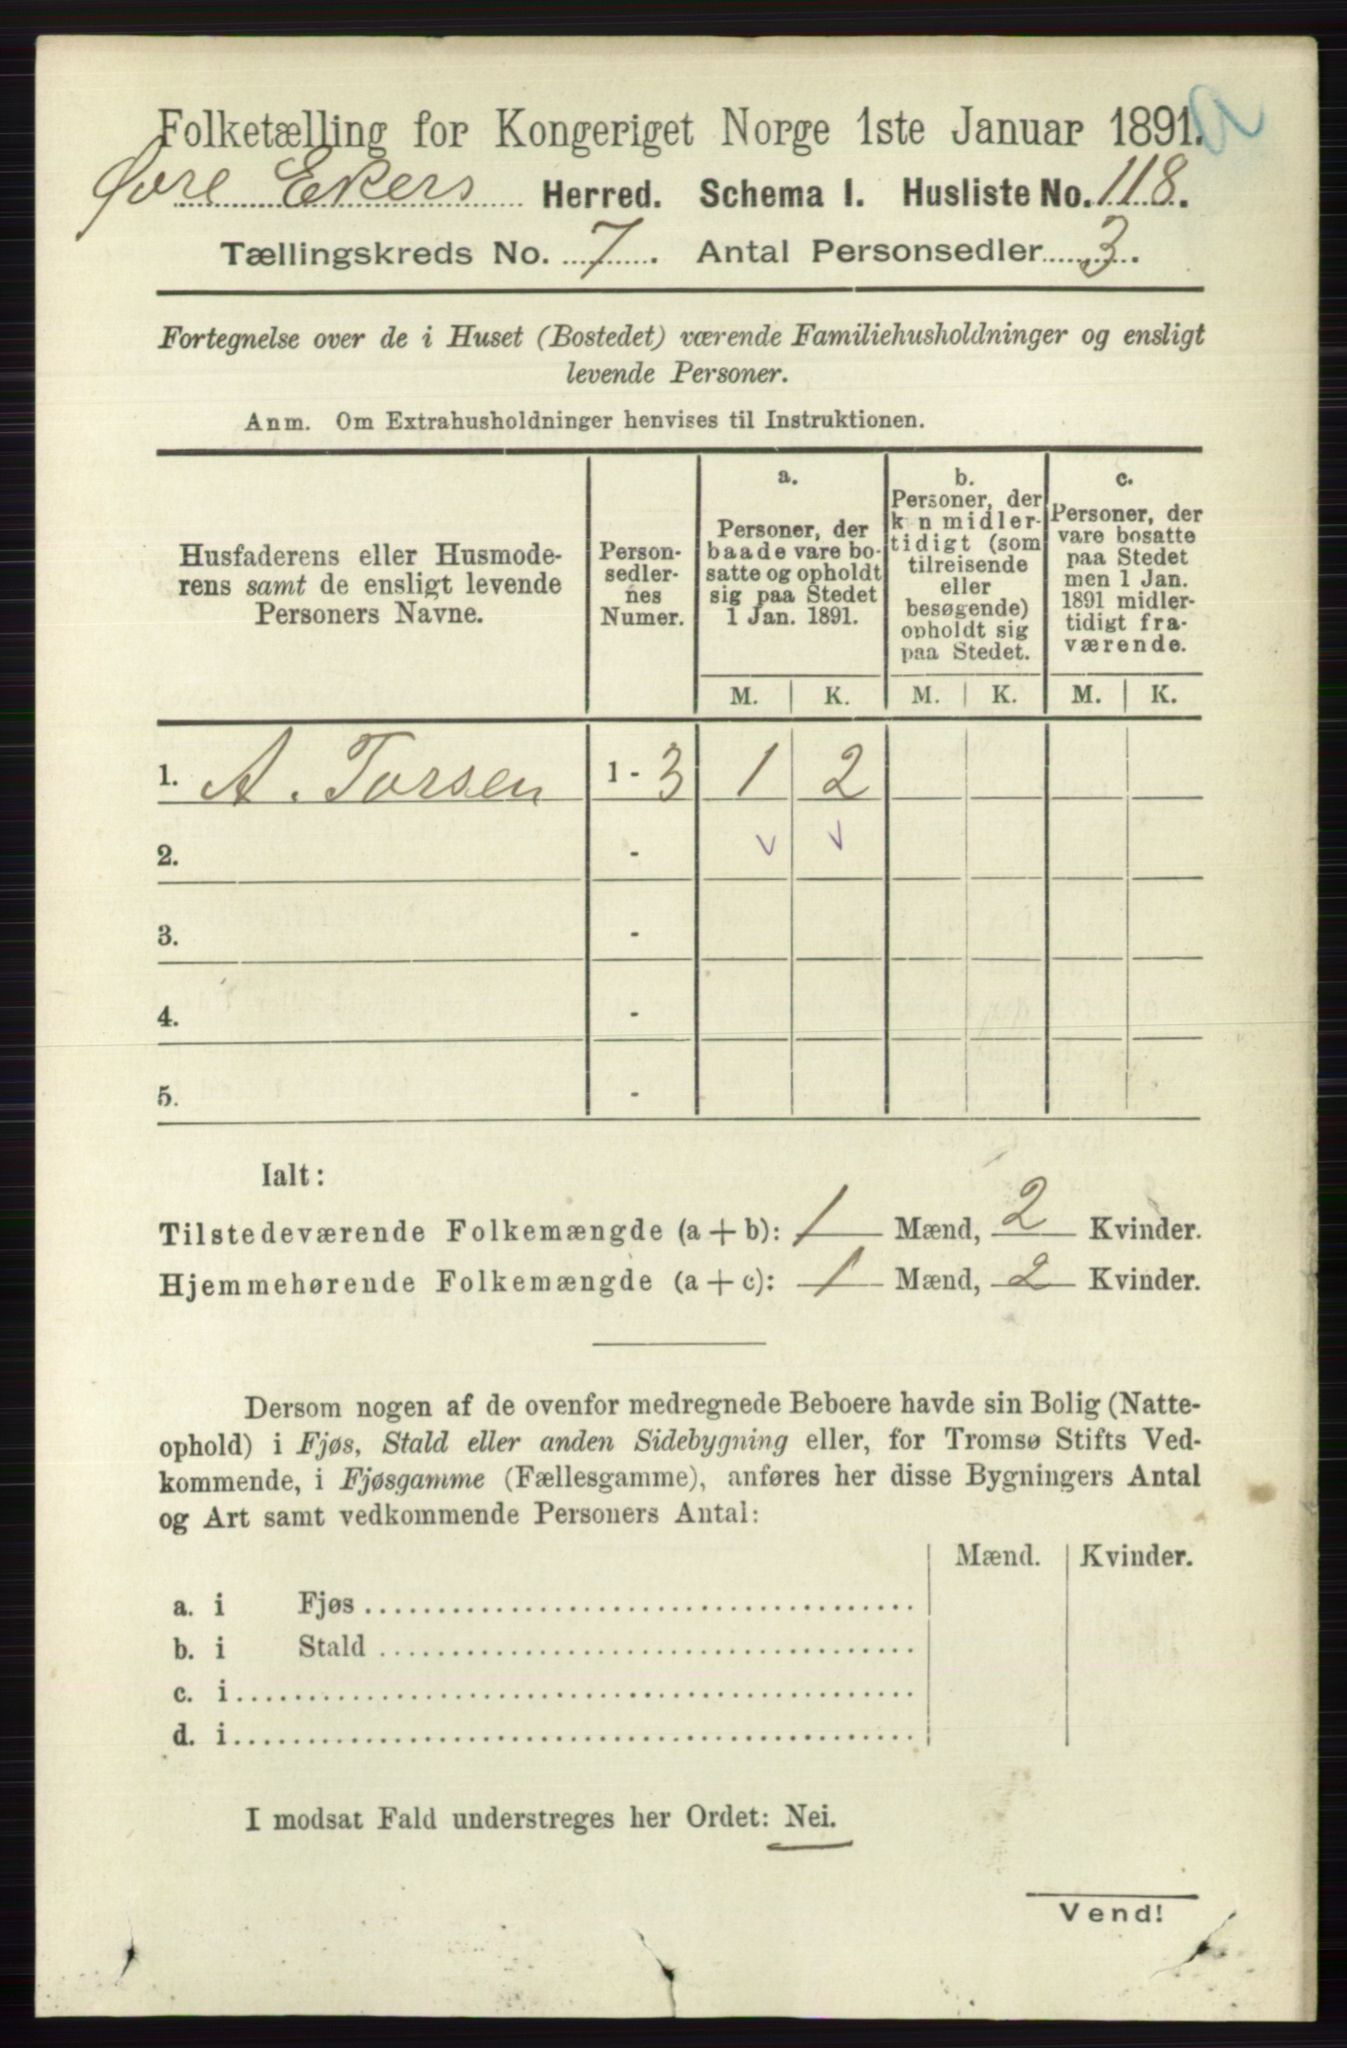 Folketælling for Kongeriget Norge 1ste Januar 1891.
Øvre Ekers Herred. Schema I. Husliste No. 118.
Tællingskreds No. 7. Antal Personsedler 3.
Fortegnelse over de i Huset (Bostedet) værende Familiehusholdninger og ensligt
levende Personer.
Anm. Om Extrahusholdninger henvises til Instruktionen.
Husfaderens eller Husmode-
rens samt de ensligt levende
Personers Navne.
Person-
sedler-
nes
Numer.
a.
Personer, der
baade vare bo-
satte og opholdt
sig paa Stedet
1 Jan. 1891.
b.
Personer, der
kun midler-
tidigt (som
tilreisende
eller
besøgende)
opholdt sig
paa Stedet.
c.
Personer, der
vare bosatte
paa Stedet
men 1 Jan.
1891 midler-
tidigt fra-
værende.
M. K. M. K. M. K.
1. A. Torsen 1 - 3 1 2
2. - v v
3. -
4. -
5. -
Ialt:
Tilstedeværende Folkemængde (a + b): 1 Mænd, 2 Kvinder.
Hjemmehørende Folkemængde (a + c): 1 Mænd, 2 Kvinder.
Dersom nogen af de ovenfor medregnede Beboere havde sin Bolig (Natte-
ophold) i Fjøs, Stald eller anden Sidebygning eller, for Tromsø Stifts Ved-
kommende, i Fjøsgamme (Fællesgamme), anføres her disse Bygningers Antal
og Art samt vedkommende Personers Antal:
Mænd. Kvinder.
a. i Fjøs
b. i Stald
c. i
d. i
I modsat Fald understreges her Ordet: Nei.
Vend!